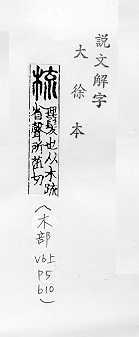 說文解字
大徐本
梳
理髮也从木疏
省聲所葅切
(木部
V6上
P5
b10)